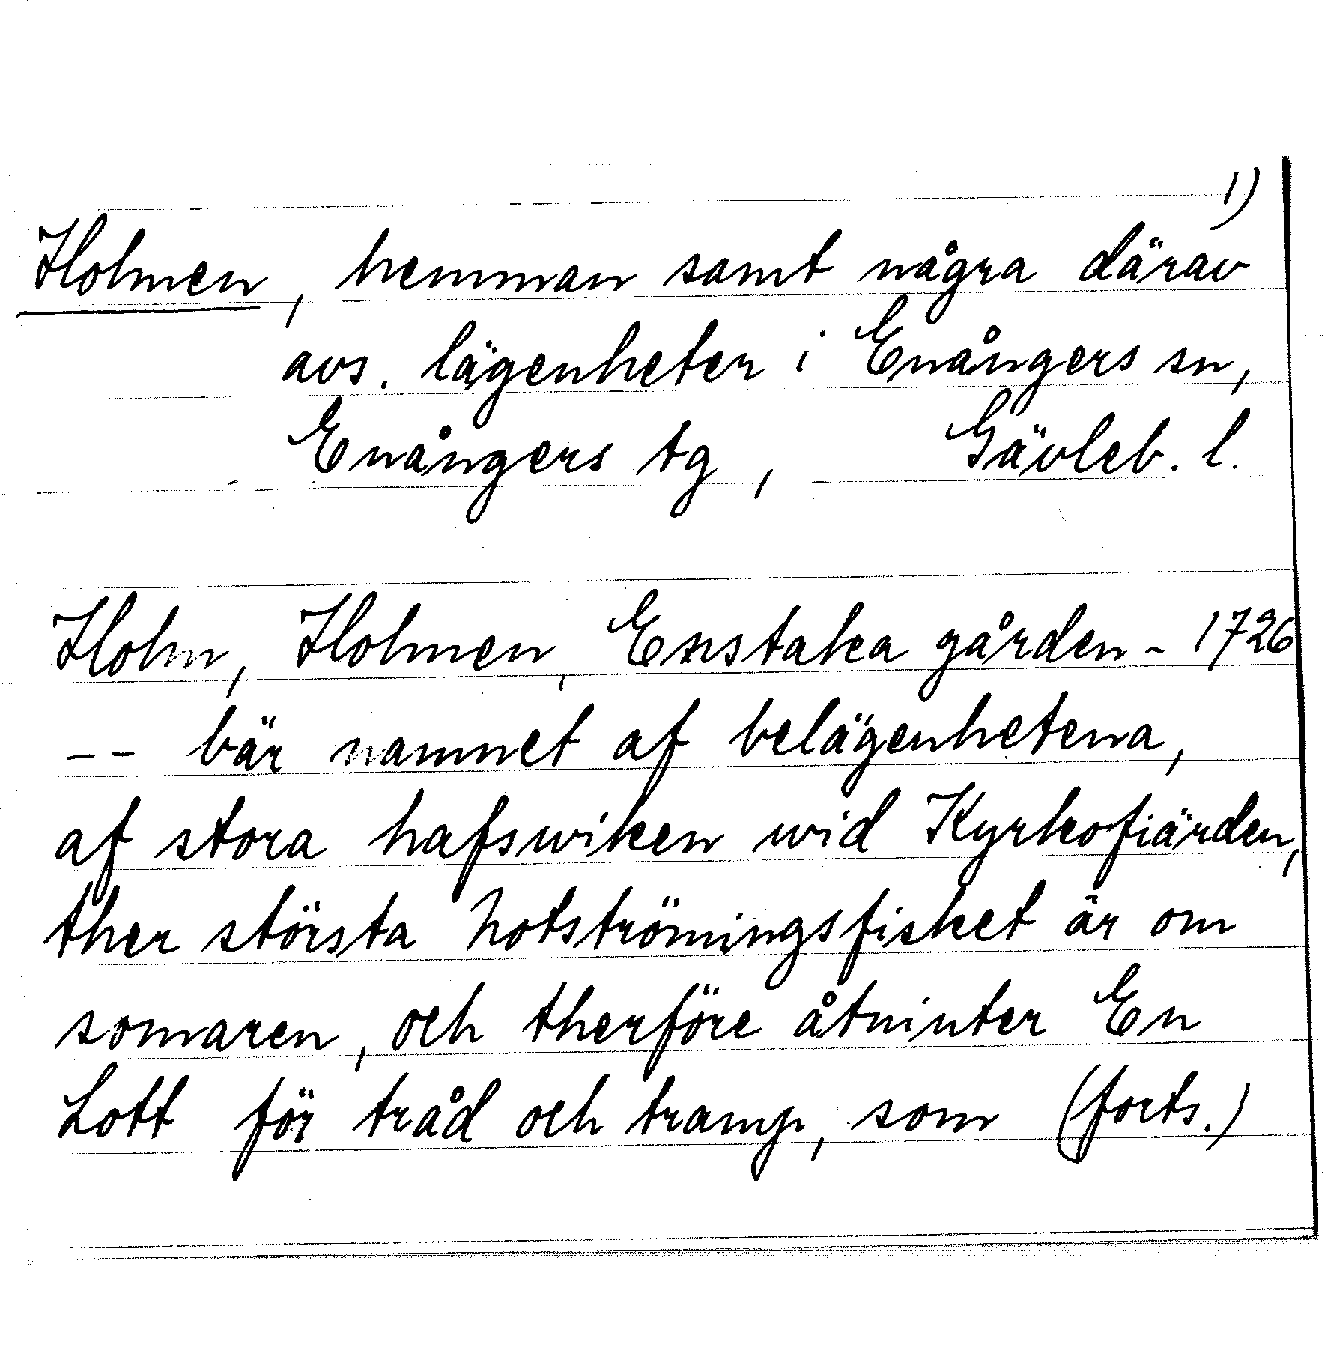 1)
Holmen, hemman samt några därav
avs. lägenheter i Enångers sn,
Enångers tg, Gävleb. l.
Holm, Holmen, Enstaka gården - 1726
-- bär namnet af belägenhetena,
af stora hafswiken wid Kyrkofiärden,
ther största Notströmingsfisket är om
somaren, och therföre åtninter En
Lott för tråd och tramp, som (forts.)